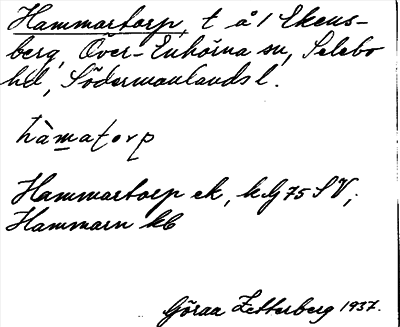 Hammartorp, t å 1 Ekens-
berg, Över-Enhörna sn, Selebo
hd, Södermanlands l.
hàmatorp
Hammartorp ek, kG 75 SV;
Hammarn kb
Göran Zetterberg 1937.